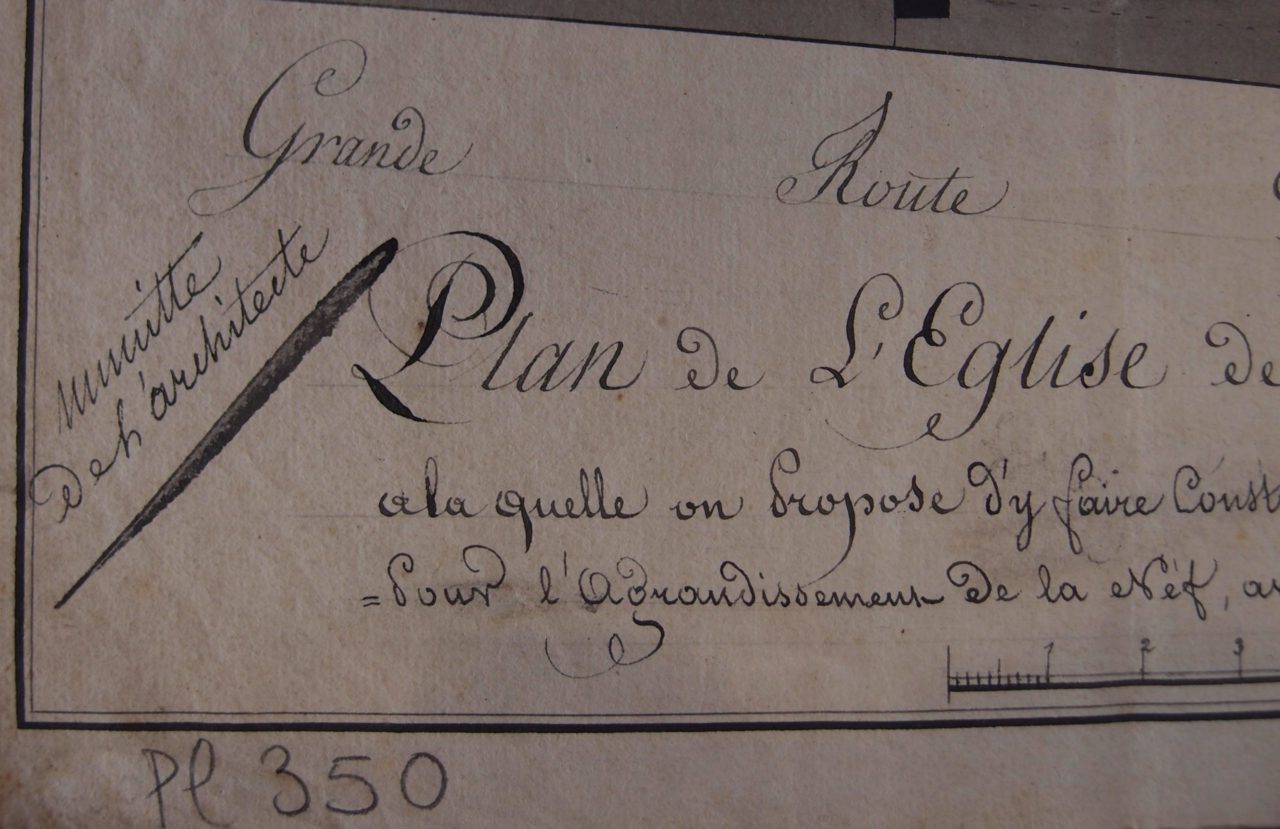 Grande Route
minutte
de l'architecte
Plan de L'Eglise de
a la quelle on Propose d'y faire Const
=Pour l'Agrandissement De la Néf, av
1 2 3
Pl 350